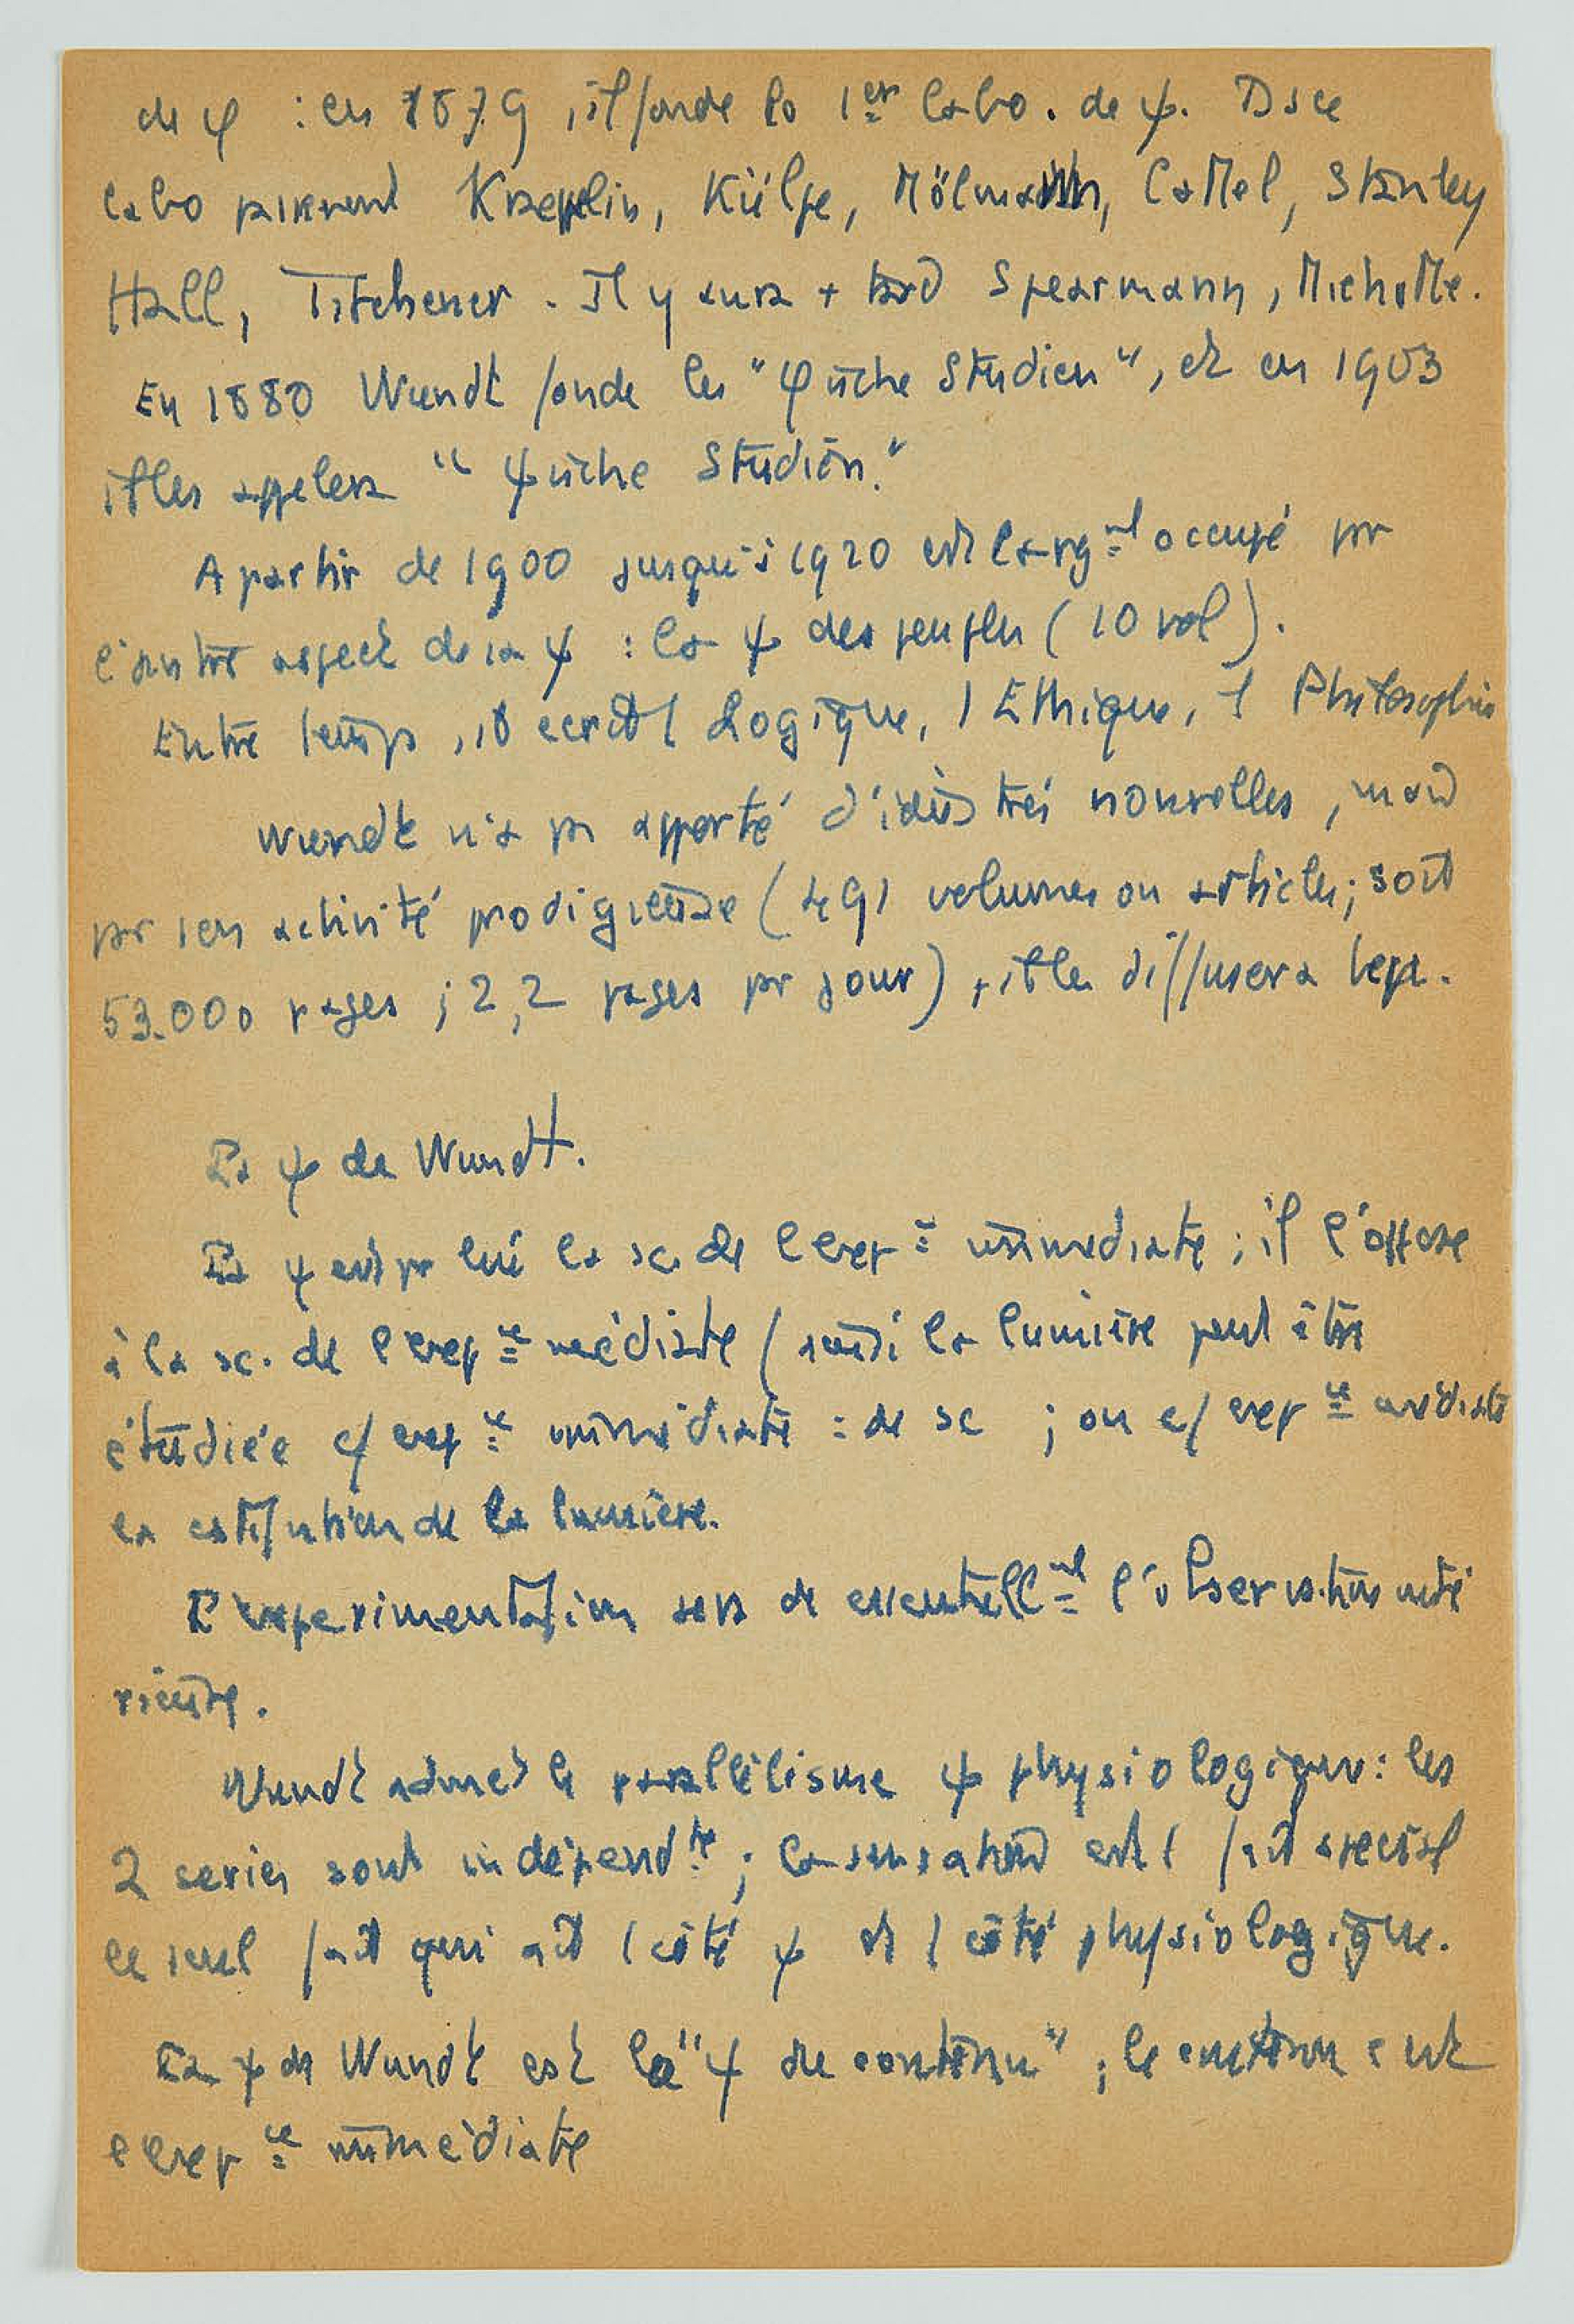 de φ : en 1879, il fonde le 1er labo. de ψ. Ds ce
labo passeront Kraepelin, Külpe, Mölmann, Cattel, Stanley
Hall, Titchener. Il y aura + tard Spearmann, Michotte.
En 1880 Wundt fonde les "φ ische Studien", et en 1903
il les appelera "ψ ische Studien."
A partir de 1900 jusqu'à 1920 est largnt occupé pr
l'autre aspect de sa ψ : la ψ des peuples (10 vol).
Entre temps, il ecrit 1 Logique, 1 Ethique, 1 Philosophie
Wundt n'a ps apporté d'idées très nouvelles, mais
par son activité prodigieuse (491 volumes ou articles; soit
53.000 pages; 2,2 pages pr jour), il les diffusera bcp.
La ψ de Wundt.
La ψ est pr lui la sc. de l'expce immediate; il l'oppose
à la sc. de l'expce médiate (ainsi la lumière peut être
étudiée c/ expce immédiate : de sc ; ou c/ expce médiate
la constitution de la lumière.
L'experimentation sera de essentiellnt l'observation inté
rieure.
Wundt admet le parallélisme ψ physiologique : les
2 series sont independtes; la sensation est 1 fait special
le seul fait qui ait 1 côté ψ et 1 côté physiologique.
La ψ de Wundt est la "ψ du contenu"; le contenu c'est
l'expce immédiate